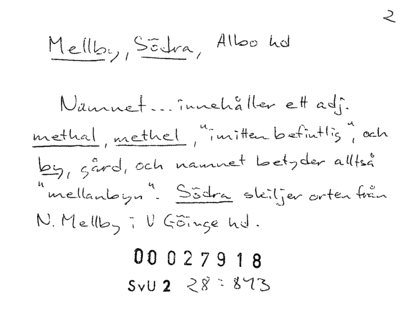 2
Mellby, Södra, Albo hd
Namnet... innehåller ett adj.
methal, methel, "i mitten befintlig", och
by, gård, och namnet betyder alltså
"mellanbyn". Södra skiljer orten från
N. Mellby i V Göinge hd.
00027918
SvU 2 28:873